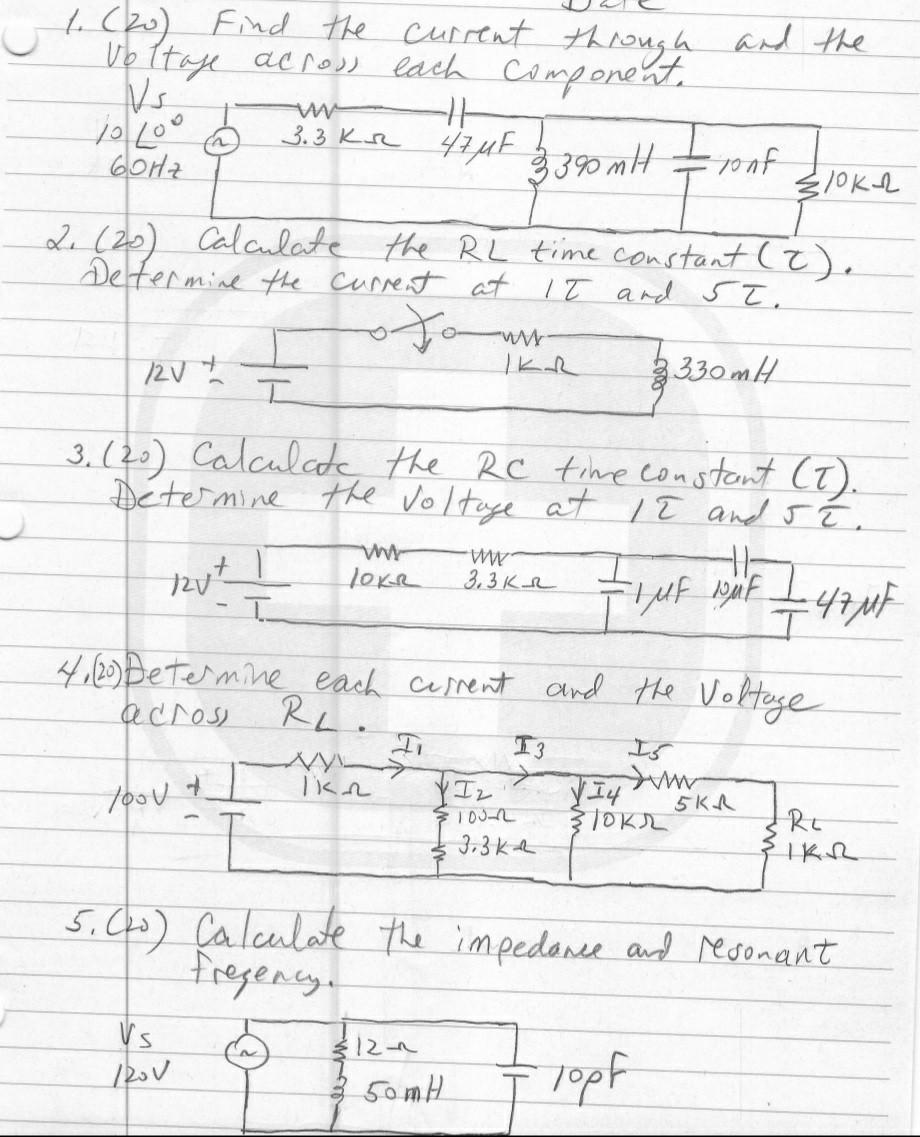 Date
1. (20) Find the current through and the
Voltage across each component.
Vs
10∠0°
60Hz
3.3KΩ
47μF
390mH
10nF
10KΩ
2. (20) Calculate the RL time constant (τ).
Determine the current at 1τ and 5τ.
12V + -
1KΩ
330mH
3. (20) Calculate the RC time constant (τ).
Determine the Voltage at 1τ and 5τ.
12V + -
10KΩ
3.3KΩ
1μF
10μF
47μF
4. (20) Determine each current and the Voltage
across RL.
I1
I3
I5
100V + -
1KΩ
I2
100Ω
3.3KΩ
I4
10KΩ
5KΩ
RL
1KΩ
5. (20) Calculate the impedance and resonant
freqency.
Vs
120V
12Ω
50mH
10pF